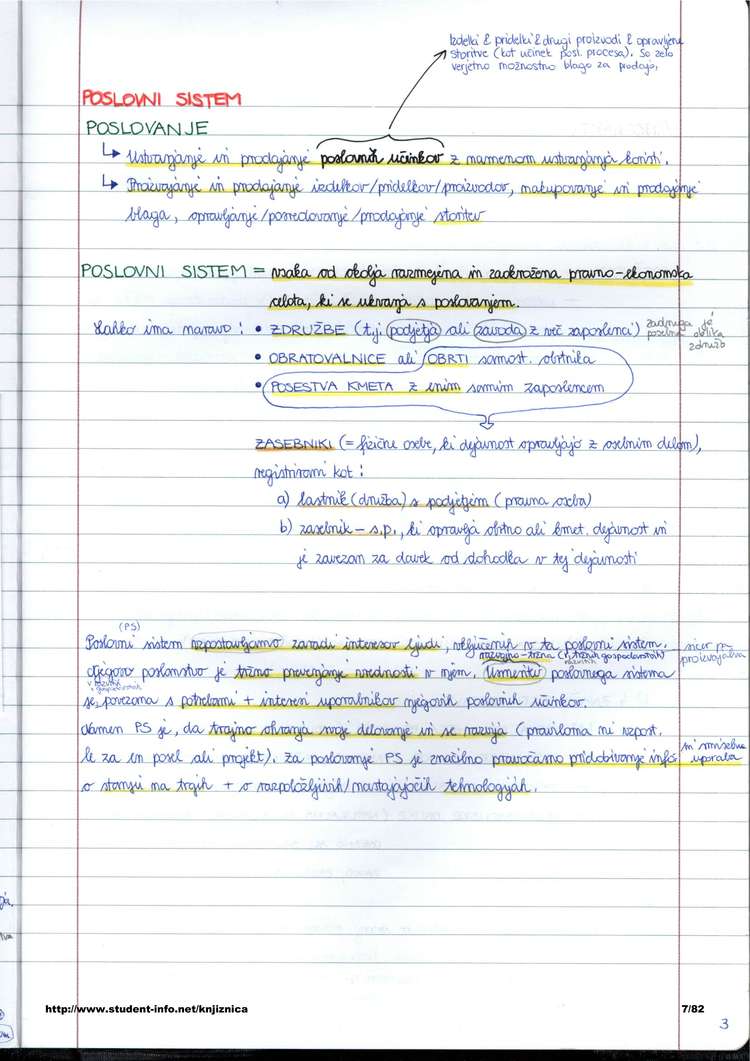 Izdelki & pridelki & drugi proizvodi & opravljene
storitve (kot učinek posl. procesa). So zelo
verjetno možnostno blago za prodajo.
POSLOVNI SISTEM
POSLOVANJE
↳ Ustvarjanje in prodajanje poslovnih učinkov z namenom ustvarjanja koristi.
↳ Proizvajanje in prodajanje izdelkov/pridelkov/proizvodov, nakupovanje in prodajanje
blaga, opravljanje/posredovanje/prodajanje storitev
POSLOVNI SISTEM = vsaka od okolja razmejena in zaokrožena pravno-ekonomska
celota, ki se ukvarja s poslovanjem.
Lahko ima naravo: • ZDRUŽBE (t.j. podjetja ali zavoda z več zaposlenci) zadruga je
posebna oblika
združb
• OBRATOVALNICE ali OBRTI samost. obrtnika
• POSESTVA KMETA z enim samim zaposlencem
ZASEBNIKI (= fizične osebe, ki dejavnost opravljajo z osebnim delom),
registrirani kot:
a) lastnik (družba) s podjetjem (pravna oseba)
b) zasebnik – s.p., ki opravlja obrtno ali kmet. dejavnost in
je zavezan za davek od dohodka v tej dejavnosti
(PS)
Poslovni sistem vzpostavljamo zaradi interesov ljudi, vključenih v ta poslovni sistem.
razvojno-tržna (v tržnih gospodarstvih)
Njegovo poslanstvo je tržno prevzemanje vrednosti v njem. Usmeritev poslovnega sistema
sicer pa
proizvajalna
je povezana s potrebami + interesi uporabnikov njegovih poslovnih učinkov.
Namen PS je, da trajno ohranja svoje delovanje in se razvija (praviloma ni vzpost.
le za en posel ali projekt). Za poslovanje PS je značilno pravočasno pridobivanje info. in smiselna
uporaba
o stanju na trgih + o razpoložljivih/nastajajočih tehnologijah.
http://www.student-info.net/knjiznica
7/82
3